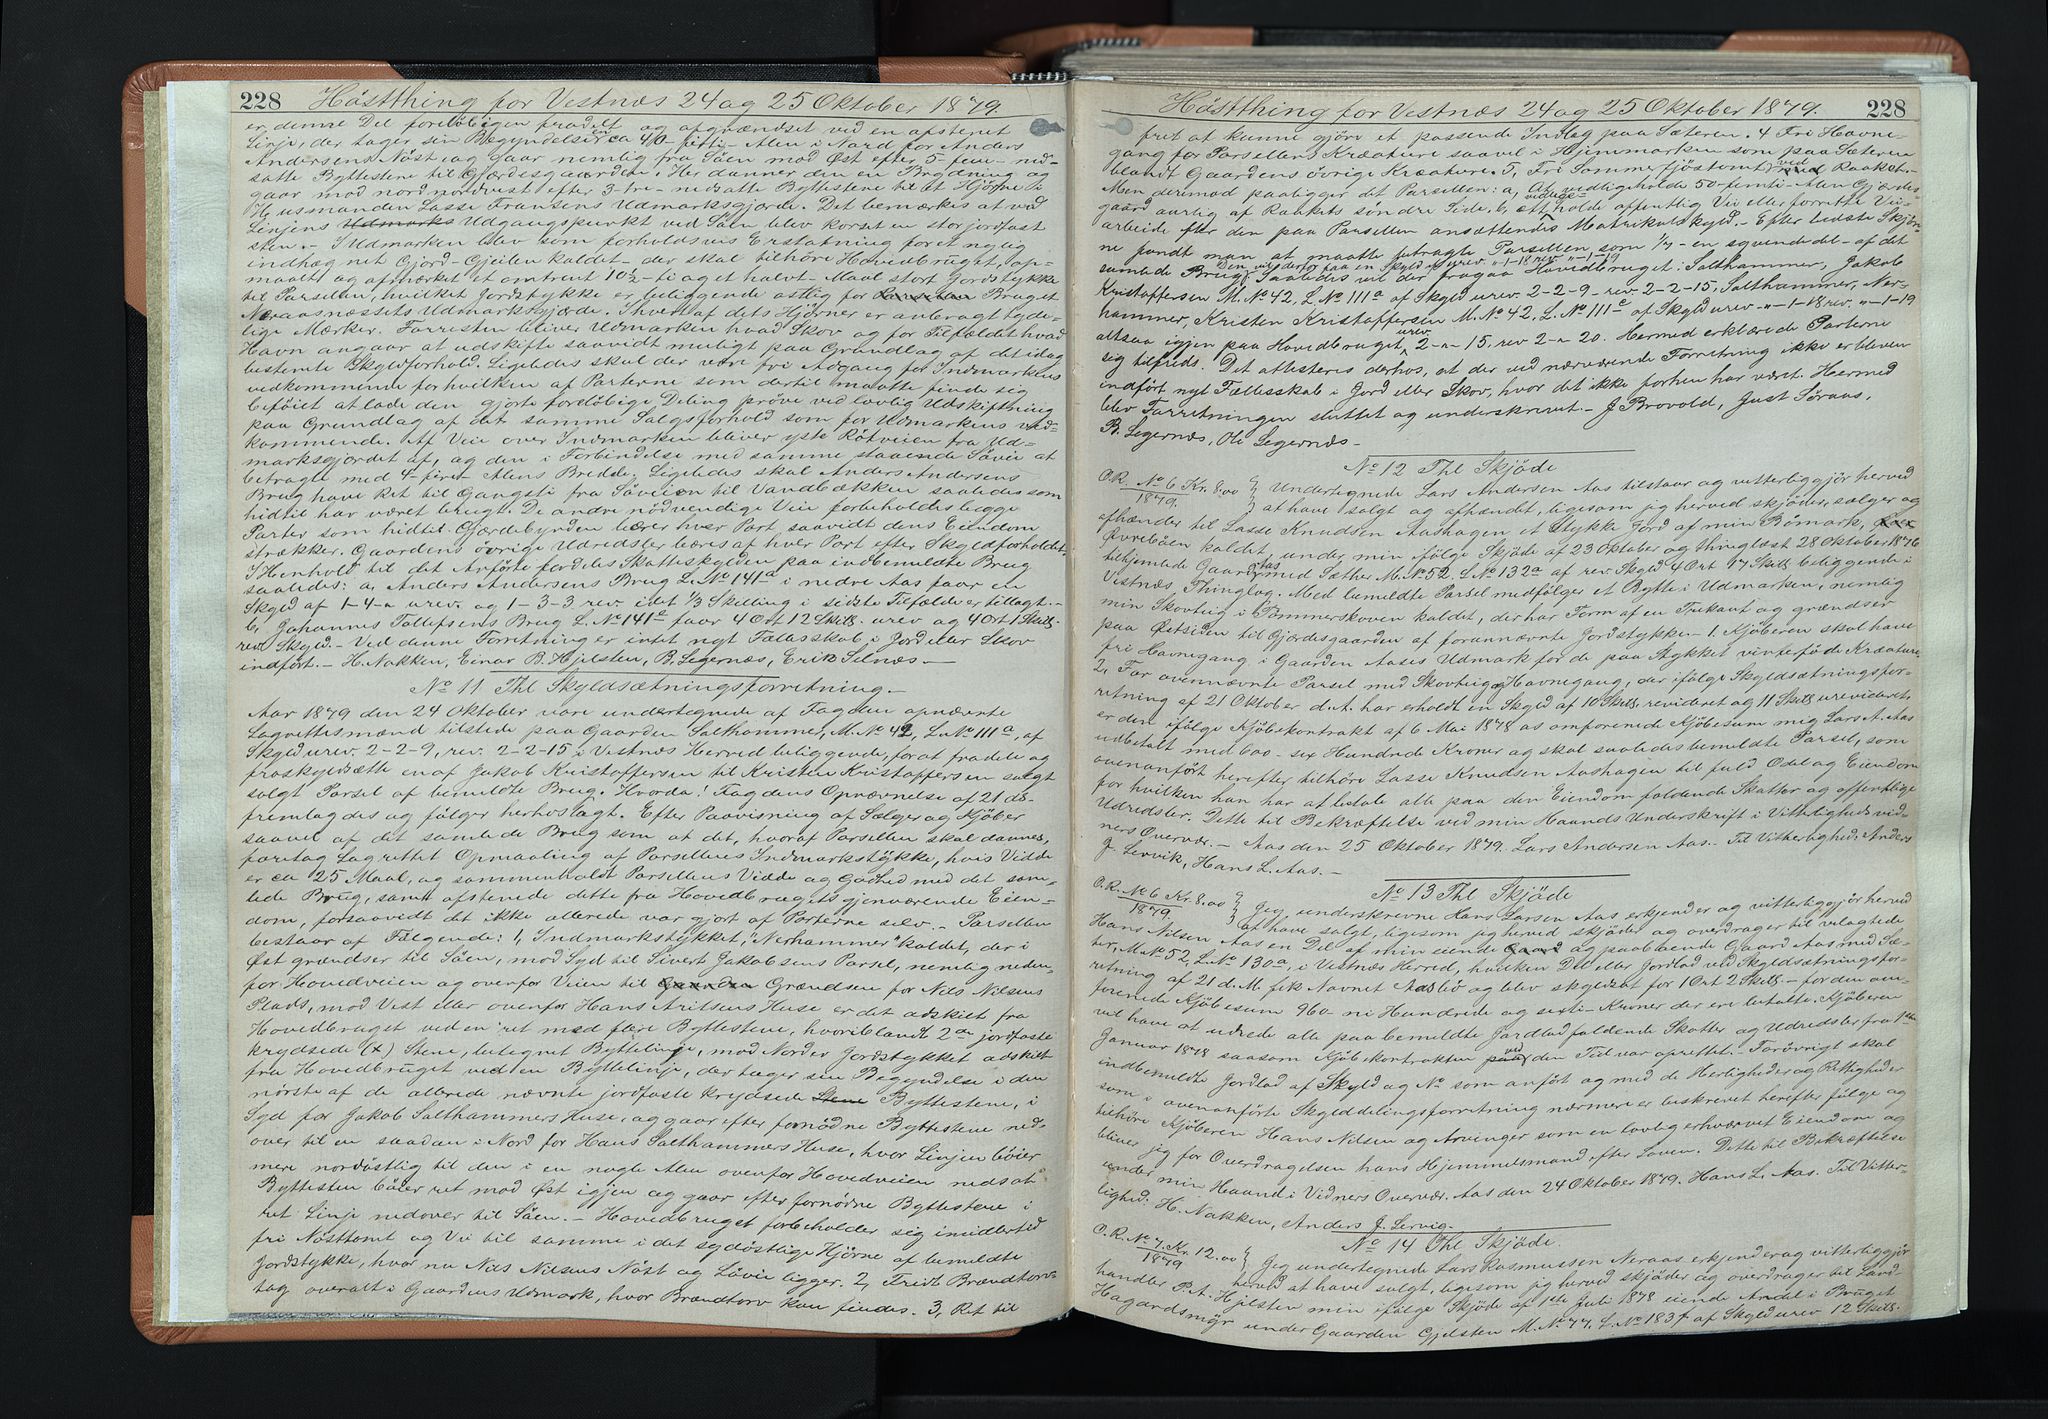 228 Hösthing for Vestnæs 24 og 25 Oktober 1879.
er denne Del foreløbigen fradelt og afgrændset ved en afsteent
Linje, der tager sin Begyndelse en ca 40-førti-Alen i Nord for Anders
Andersens Nöst, og gaar nemlig fra Söen mod Øst efter 5-fem-ned-
satte Byttestene til Gjærdesgaarden. Her danner den en Brydning og
gaar mod nordnordvest efter 3-tre-nedsatte Byttestene til et Hjørne i
Husmanden Lasse Fransens Udmarksgjærde. Det bemærkes at ved
Linjens Udmarks Udgangspunkt ved Söen blev korset en stor jordfast
sten.- I Udmarken blev som forholdsvis Erstatning for et nylig
indhægnet Gjord-Gjeilen kaldet- der skal tilhöre Hovedbruget, op-
maalt og afmærket et omtrent 10½-ti og et halvt-Maal stort Jordstykke
til Parsellen, hvilket Jordstykke er beliggende östlig for Bruget
Neraasnæssets Udmarksgjærde. I hvert af dets Hjörner er anbragt tyde-
lige Mærker. Forresten bliver Udmarken hvad Skov og for Tilfældet hvad
Havn angaar at udskifte saavidt muligt paa Grundlag af det idag
bestemte Skyldforhold. Ligeledes skal der være fri Adgang for Indmarkens
vedkommende for hvilken af Parterne som dertil maatte finde sig
beföiet at lade den gjorte foreløbige Deling pröve ved lovlig Udskiftning
paa Grundlag af det samme Salgsforhold som for Udmarkens ved-
kommende. Af Veie over Indmarken bliver yste Rötveien fra Ud-
marksgjærdet af, og den i Forbindelse med samme staaende Söveie at
betragte med 4-fire-Alens Bredde. Ligeledes skal Anders Andersens
Brug have Ret til Gangsti fra Söveien til Vandbækken saaledes som
hidtil har været brugt. De andre nödvendige Veie forbeholdes begge
Parter som hidtil. Gjærdebyrden bærer hver Part saavidt dens Eiendom
strækker. Gaardens övrige Udredsler bæres af hver Part efter Skyldforholdet.
I Henhold til det Anførte fordeles Skatteskylden paa indbemeldte Brug
saaledes: a, Anders Andersens Brug L.No 141a i nedre Aas faar en
Skyld af 1-4-" urev. og 1-3-3 rev. idet ⅓ Skilling i sidste Tilfælde er tillagt.-
b, Johannes Tollefsens Brug L.No 141c faar 4 Ort 12 Skill. urev og 4 Ort 1 Skill.
rev Skyld.- Ved denne Forretning er intet nyt Fællesskab i Jord eller Skov
indfört.- H. Nakken, Einar B. Hjelsten, B. Legernæs, Erik Selnæs.-
No 11 Thl Skyldsætningsforretning.-
Aar 1879 den 24 Oktober vare undertegnede af Fogden opnævnte
Lagrettesmænd tilstede paa Gaarden Salthammer, M.No 42, L.No 111a, af
Skyld urev. 2-2-9, rev. 2-2-15 i Vestnæs Herred beliggende, for at fradele og
fraskyldsætte en af Jakob Kristoffersen til Kristen Kristoffersen solgt
solgt Parsel af bemeldte Brug. Hvorda! Fogdens Opnævnelse af 21 ds.
fremlagdes og fölger herhos lagt. Efter Paavisning af Sælger og Kjöber
saavel af det samlede Brug som at det, hvoraf Parsellen skal dannes,
foretog Lagrettet Opmaaling af Parsellens Indmarkstykke, hvis Vidde
er ca 25 Maal, og sammenholdt Parsellens Vidde og Godhed med det sam-
lede Brug, samt afstenede dette fra Hovedbrugets gjenværende Eien-
dom, forsaavidt det ikke allerede var gjort af Parterne selv.- Parsellen
bestaar af Fölgende: 1, Indmarkstykket, "Nerhammer" kaldet, der i
Øst grændser til Söen, mod Syd til Sivert Jakobsens Parsel, nemlig neden-
for Hovedveien og ovenfor Veien til Grændsen for Nils Nilsens
Plads, mod Vest eller ovenfor Hans Aritsens Huse er det adskilt fra
Hovedbruget ved en ret med flere Byttestene, hvoriblandt 2de jordfaste
krydsede (x) Stene, betegnet Byttelinje, mod Norder Jordstykket adskilt
fra Hovedbruget ved en Byttelinje, der tager sin Begyndelse i den
nörste af de allerede nævnte jordfaste krydsede Stene Byttestene, i
Syd for Jakob Salthammers Huse, og gaar efter fornödne Byttestene ned-
over til en saadan i Nord for Hans Salthammers Huse, hvor Linjen böier
mere nordöstlig til den i en nogle Alen ovenfor Hovedveien nedsat
Byttesten böier ret mod Øst igjen og gaar efter fornödne Byttestene i
ret Linje nedover til Söen.- Hovedbruget forbeholder sig imidlertid
fri Nösttomt og Vei til samme i det sydöstlige Hjörne af bemeldte
Jordstykke, hvor nu Nils Nilsens Nöst og Söveie ligger. 2, Fridt Brændtorv-
tag overalt i Gaardens Udmark, hvor Brændtorv kan findes. 3, Ret til
Hösthing for Vestnæs 24 og 25 Oktober 1879. 228
frit at kunne gjöre et passende Indlæg paa Sæteren. 4 Fri Havne-
gang for Parsellens Kreature saavel i Hjemmarken som paa Sæteren
blandt Gaardens övrige Kreature. 5, Fri Sommerfjöstomt ved Raaket.-
Men dermod paaligger det Parsellen: a, at vedligeholde 50-femti-Alen Gjærdes-
gaard aarlig af Raakets söndre Side. b, at vedlige- holde offentlig Vei eller forrette Vei-
arbeide efter den paa Parsellen ansættendes Matrikulskyld.- Efter bedste Skjön-
ne fandt man at maatte betragte Parsellen som 1/7-en syvendedel-af det
samlede Brug. Den nye derfor faa en Skyld af urev. "-1-18 rev. "-1-19
Saaledes vil der fragaa Hovedbruget: Salthammer, Jakob
Kristoffersen M.No 42, L.No 111a af Skyld urev. 2-2-9-rev. 2-2-15, Salthammer, Ner-
hammer, Kristen Kristoffersen M.No 42, L.No 111c af Skyld urev "-1-18 rev. "-1-19
altsaa igjen paa Hovedbruget urev 2-"-15, rev 2-"-20. Hermed erklærede Parterne
sig tilfreds. Det attesteres derhos, at der ved nærværende Forretning ikke er bleven
indfört nyt Fællesskab i Jord eller Skov, hvor det ikke forhen har været. Heermed
blev Forretningen sluttet og underskrevet.- J. Brovold, Just Söraas,
B. Legernæs, Ole Legernæs.-
No 12 Thl Skjöde
O.R. No 6 Kr. 8.00 Undertegnede Lars Andersen Aas tilstaar og vitterliggjör herved
1879. at have solgt og afhændet, ligesom jeg herved skjöder, sælger og
afhænder til Lasse Knudsen Aashagen et Stykke Jord af min Bömark,
Övreböen kaldet, under min ifölge Skjöde af 23 Oktober og thinglæst 28 Oktober 1876
tilhjemlede Gaard Aas med Sæther M.No 52. L.No 132a af rev. Skyld 4 Ort 17 Skill. beliggende i
Vestnæs Thinglag. Med bemeldte Parsel medfölger et Bytte i Udmarken, nemlig
min Skovteig i Tömmerskoven kaldet, der har Form af en Trekant og grændser
paa Østsiden til Gjærdesgaarden af forannævnte Jordstykke.- 1. Kjöberen skal have
fri Havnegang i Gaarden Aases Udmark for de paa Stykket vinterföde Kreature.
2, For ovennævnte Parsel med Skovteig og Havnegang, der ifölge Skyldsætningsfor-
retning af 21 Oktober d.A. har erholdt en Skyld af 10 Skill. revideret og 11 Skill urevideret,
er den ifölge Kjöbekontrakt af 6 Mai 1878 os omforenede Kjöbesum mig Lars A. Aas
udbetalt med 600-sex Hundrede Kroner og skal saaledes bemeldte Parsel, som
ovenanfört herefter tilhöre Lasse Knudsen Aashagen til fuld Odel og Eiendom
for hvilken han har at betale alle paa den Eiendom faldende Skatter og offentlige
Udredsler. Dette til Bekræftelse ved min Haands Underskrift i Vitterligheds vid-
ners Overvær.- Aas den 25 Oktober 1879. Lars Andersen Aas.- Til Vitterlighed: Anders
J. Lervik, Hans L. Aas.-
No 13 Thl Skjöde
O.R. No 6 Kr. 8.00 Jeg underskrevne Hans Larsen Aas erkjender og vitterliggjör herved
1879. at have solgt, ligesom jeg herved skjöder og overdrager til velagtede
Hans Nilsen Aas en Del af min eiende Gaard og paaboende Gaard Aas med Sæ-
ter, M.No 52, L.No 130a, i Vestnæs Herred, hvilken Del eller Jordlod ved Skyldsætningsfor-
retning af 21 d.M. fik Navnet Aasbö og blev skyldsat for 1 Ort 2 Skill.- for den om-
forenede Kjöbesum 960-ni Hundrede og sexti-Kroner der ere betalte. Kjöberen
vil have at udrede alle paa bemeldte Jordlod faldende Skatter og Udredsler fra 1ste
Januar 1878 saasom Kjöbekontrakten paa ved den Tid var oprettet.- Forövrigt skal
indbemeldte Jordlod af Skyld og No som anfört og med de Herligheder og Rettigheder
som i ovenanförte Skylddelingsforretning nærmere er beskrevet herefter fölge og
tilhöre Kjöberen Hans Nilsen og Arvinger som en lovlig erhvervet Eiendom og
bliver jeg for Overdragelsen hans Hjemmelsmand efter Loven. Dette til Bekræftelse
under min Haand i Vidners Overvær. Aas den 24 Oktober 1879. Hans L. Aas. Til Vitter-
lighed. H. Nakken, Anders J. Lervig.-
No 14 Thl Skjöde.
O.R. No 7. Kr. 12.00 Jeg undertegnede Lars Rasmussen Neraas erkjender og vitterliggjör
1879 herved at have solgt, ligesom jeg herved skjöder og overdrager til Land-
handler P. A. Hjelsten min ifölge Skjöde af 1ste Juli 1878 eiende Andel i Bruget
Hagardsmyr under Gaarden Gjelsten M.No 77. L.No 183f af Skyld urev 12 Skill.